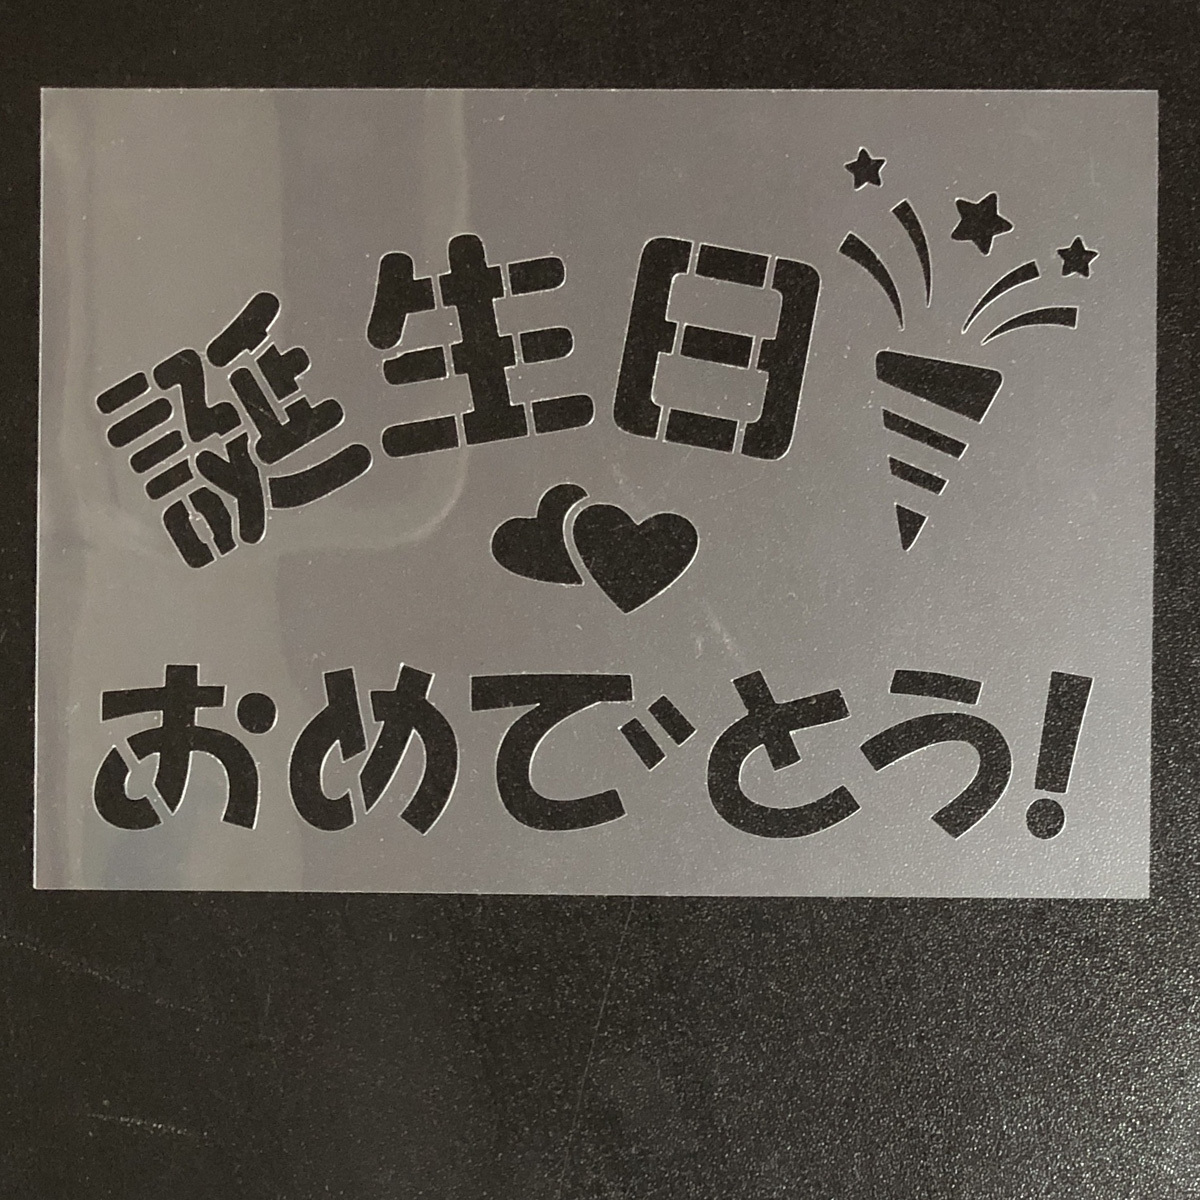 誕生日
おめでとう!